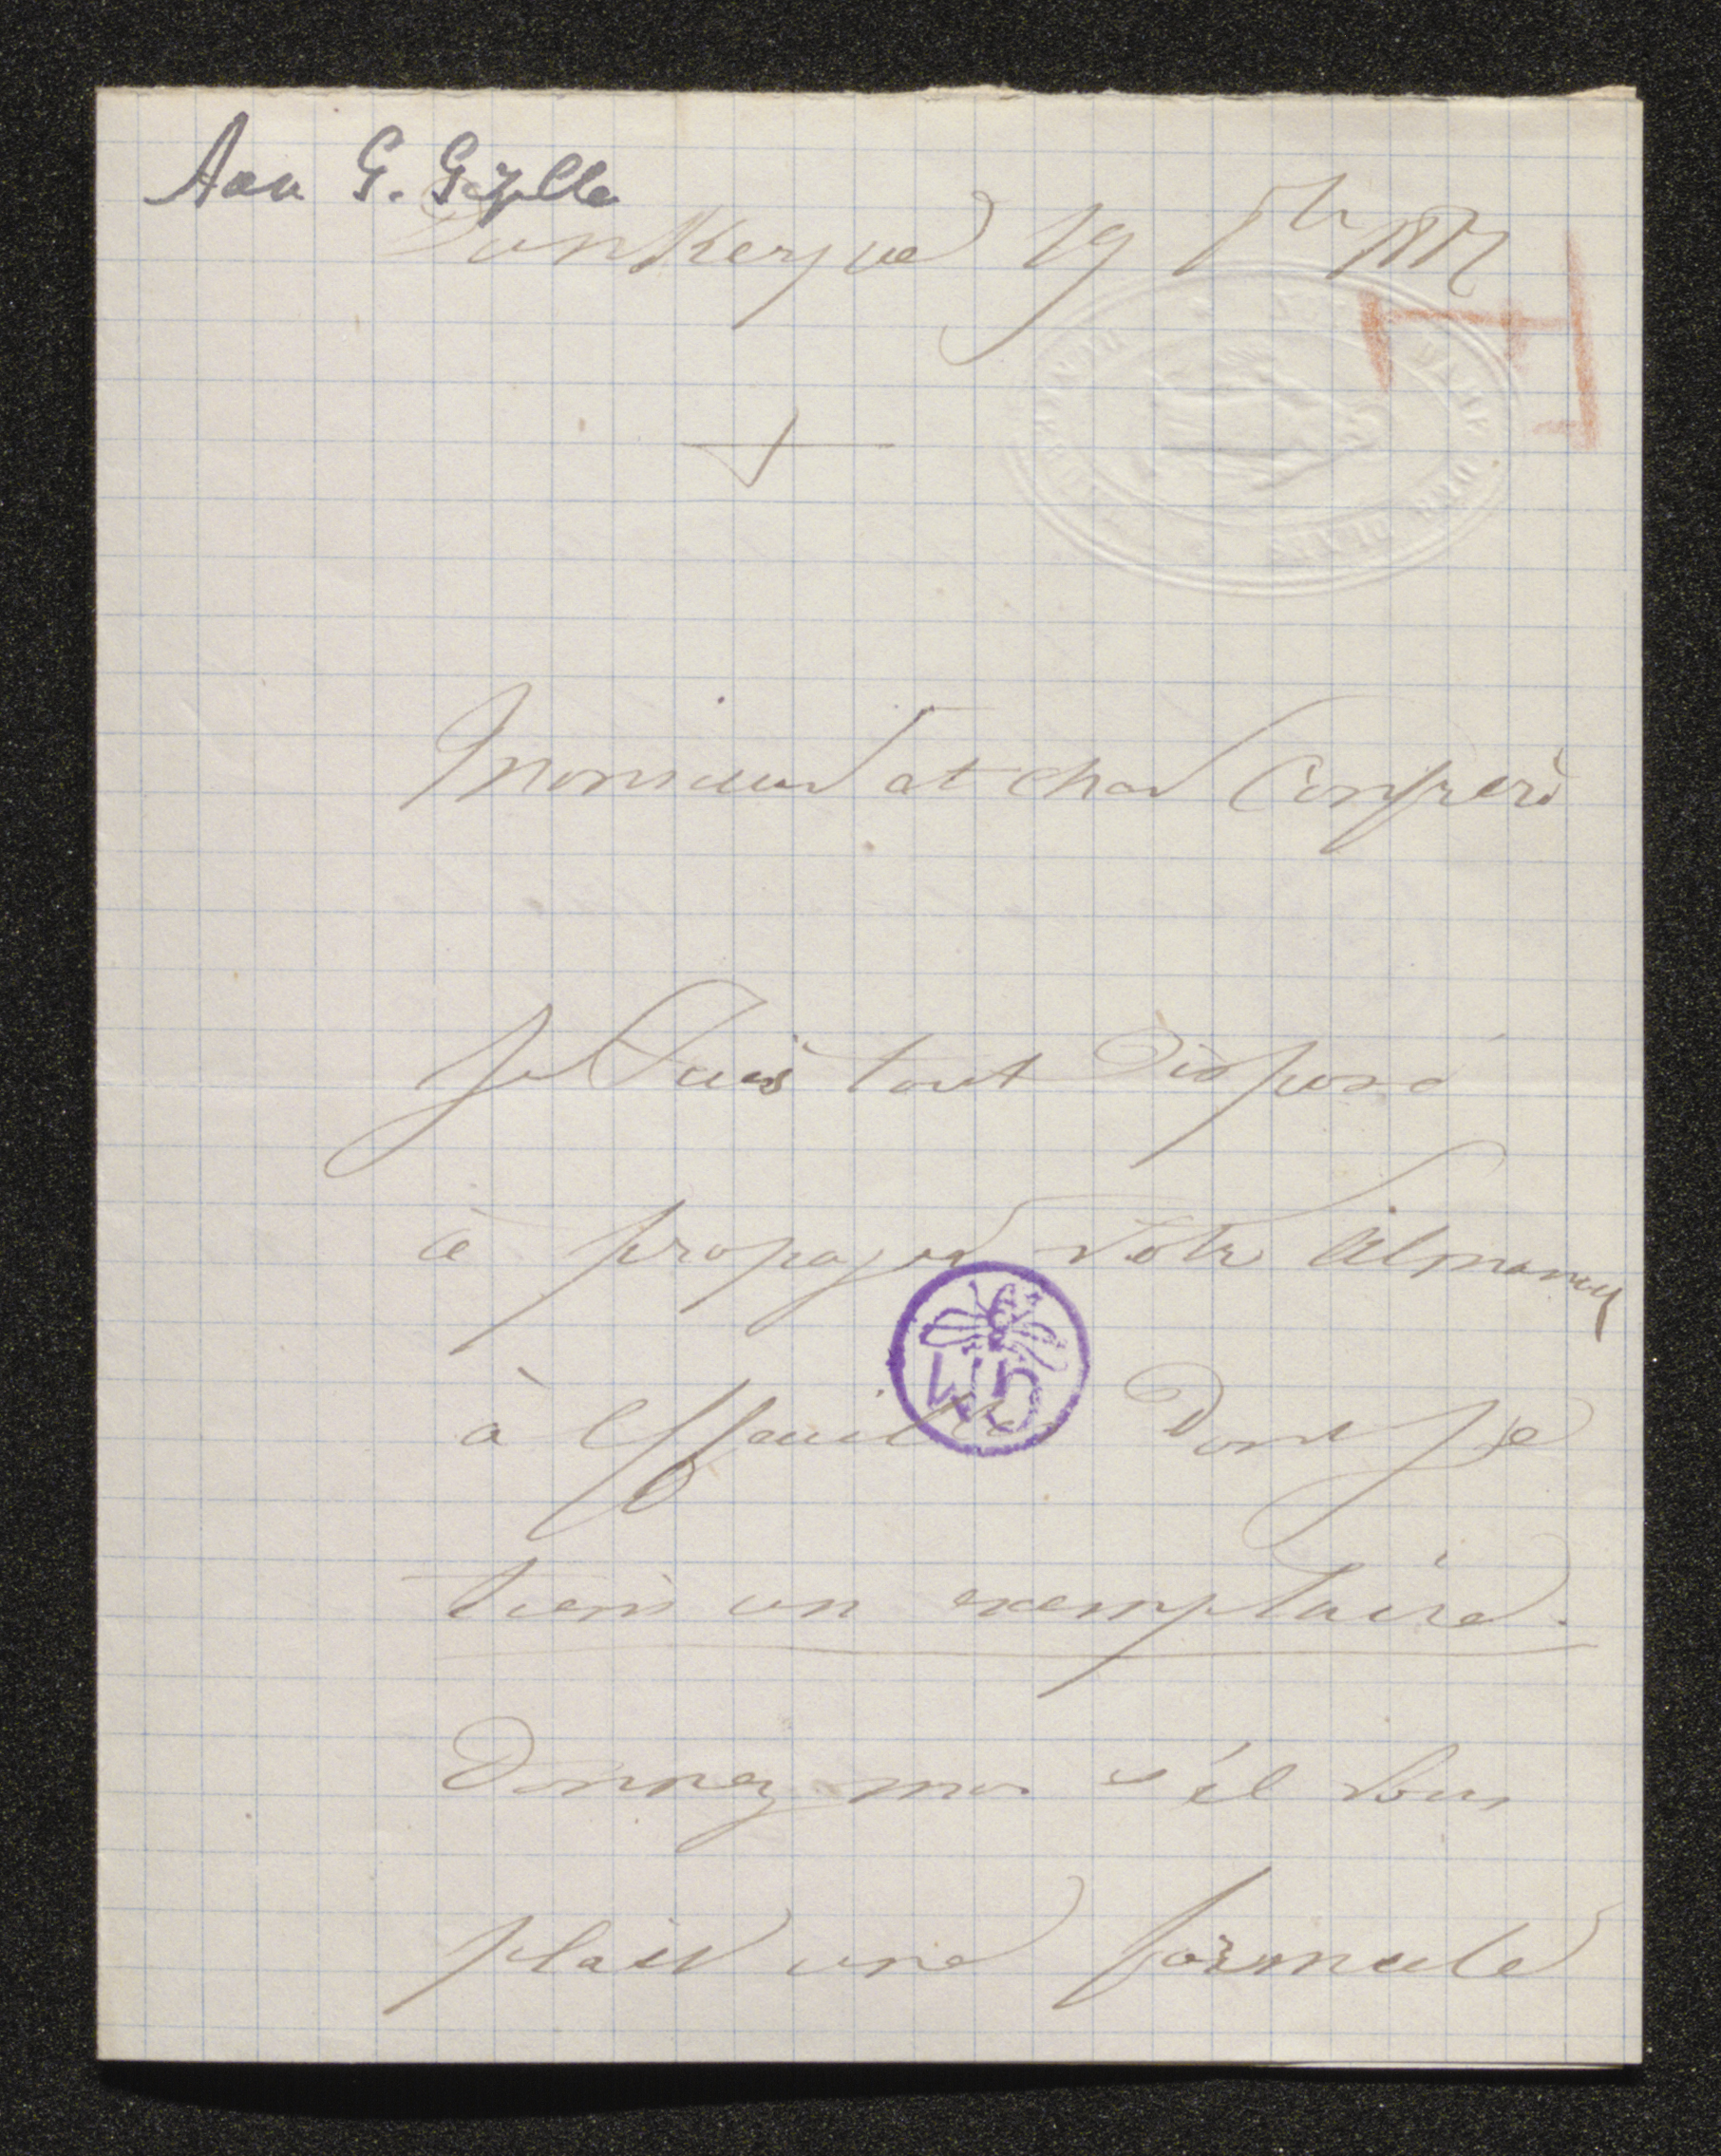 Aan G. Gezelle
Dunkerque 19 1887
Monsieur et cher Confrère
Je suis tout disposé
à propager votre Almanach
à effeuiller dont je
tiens un exemplaire.
Donnez moi s'il vous
plait une formule